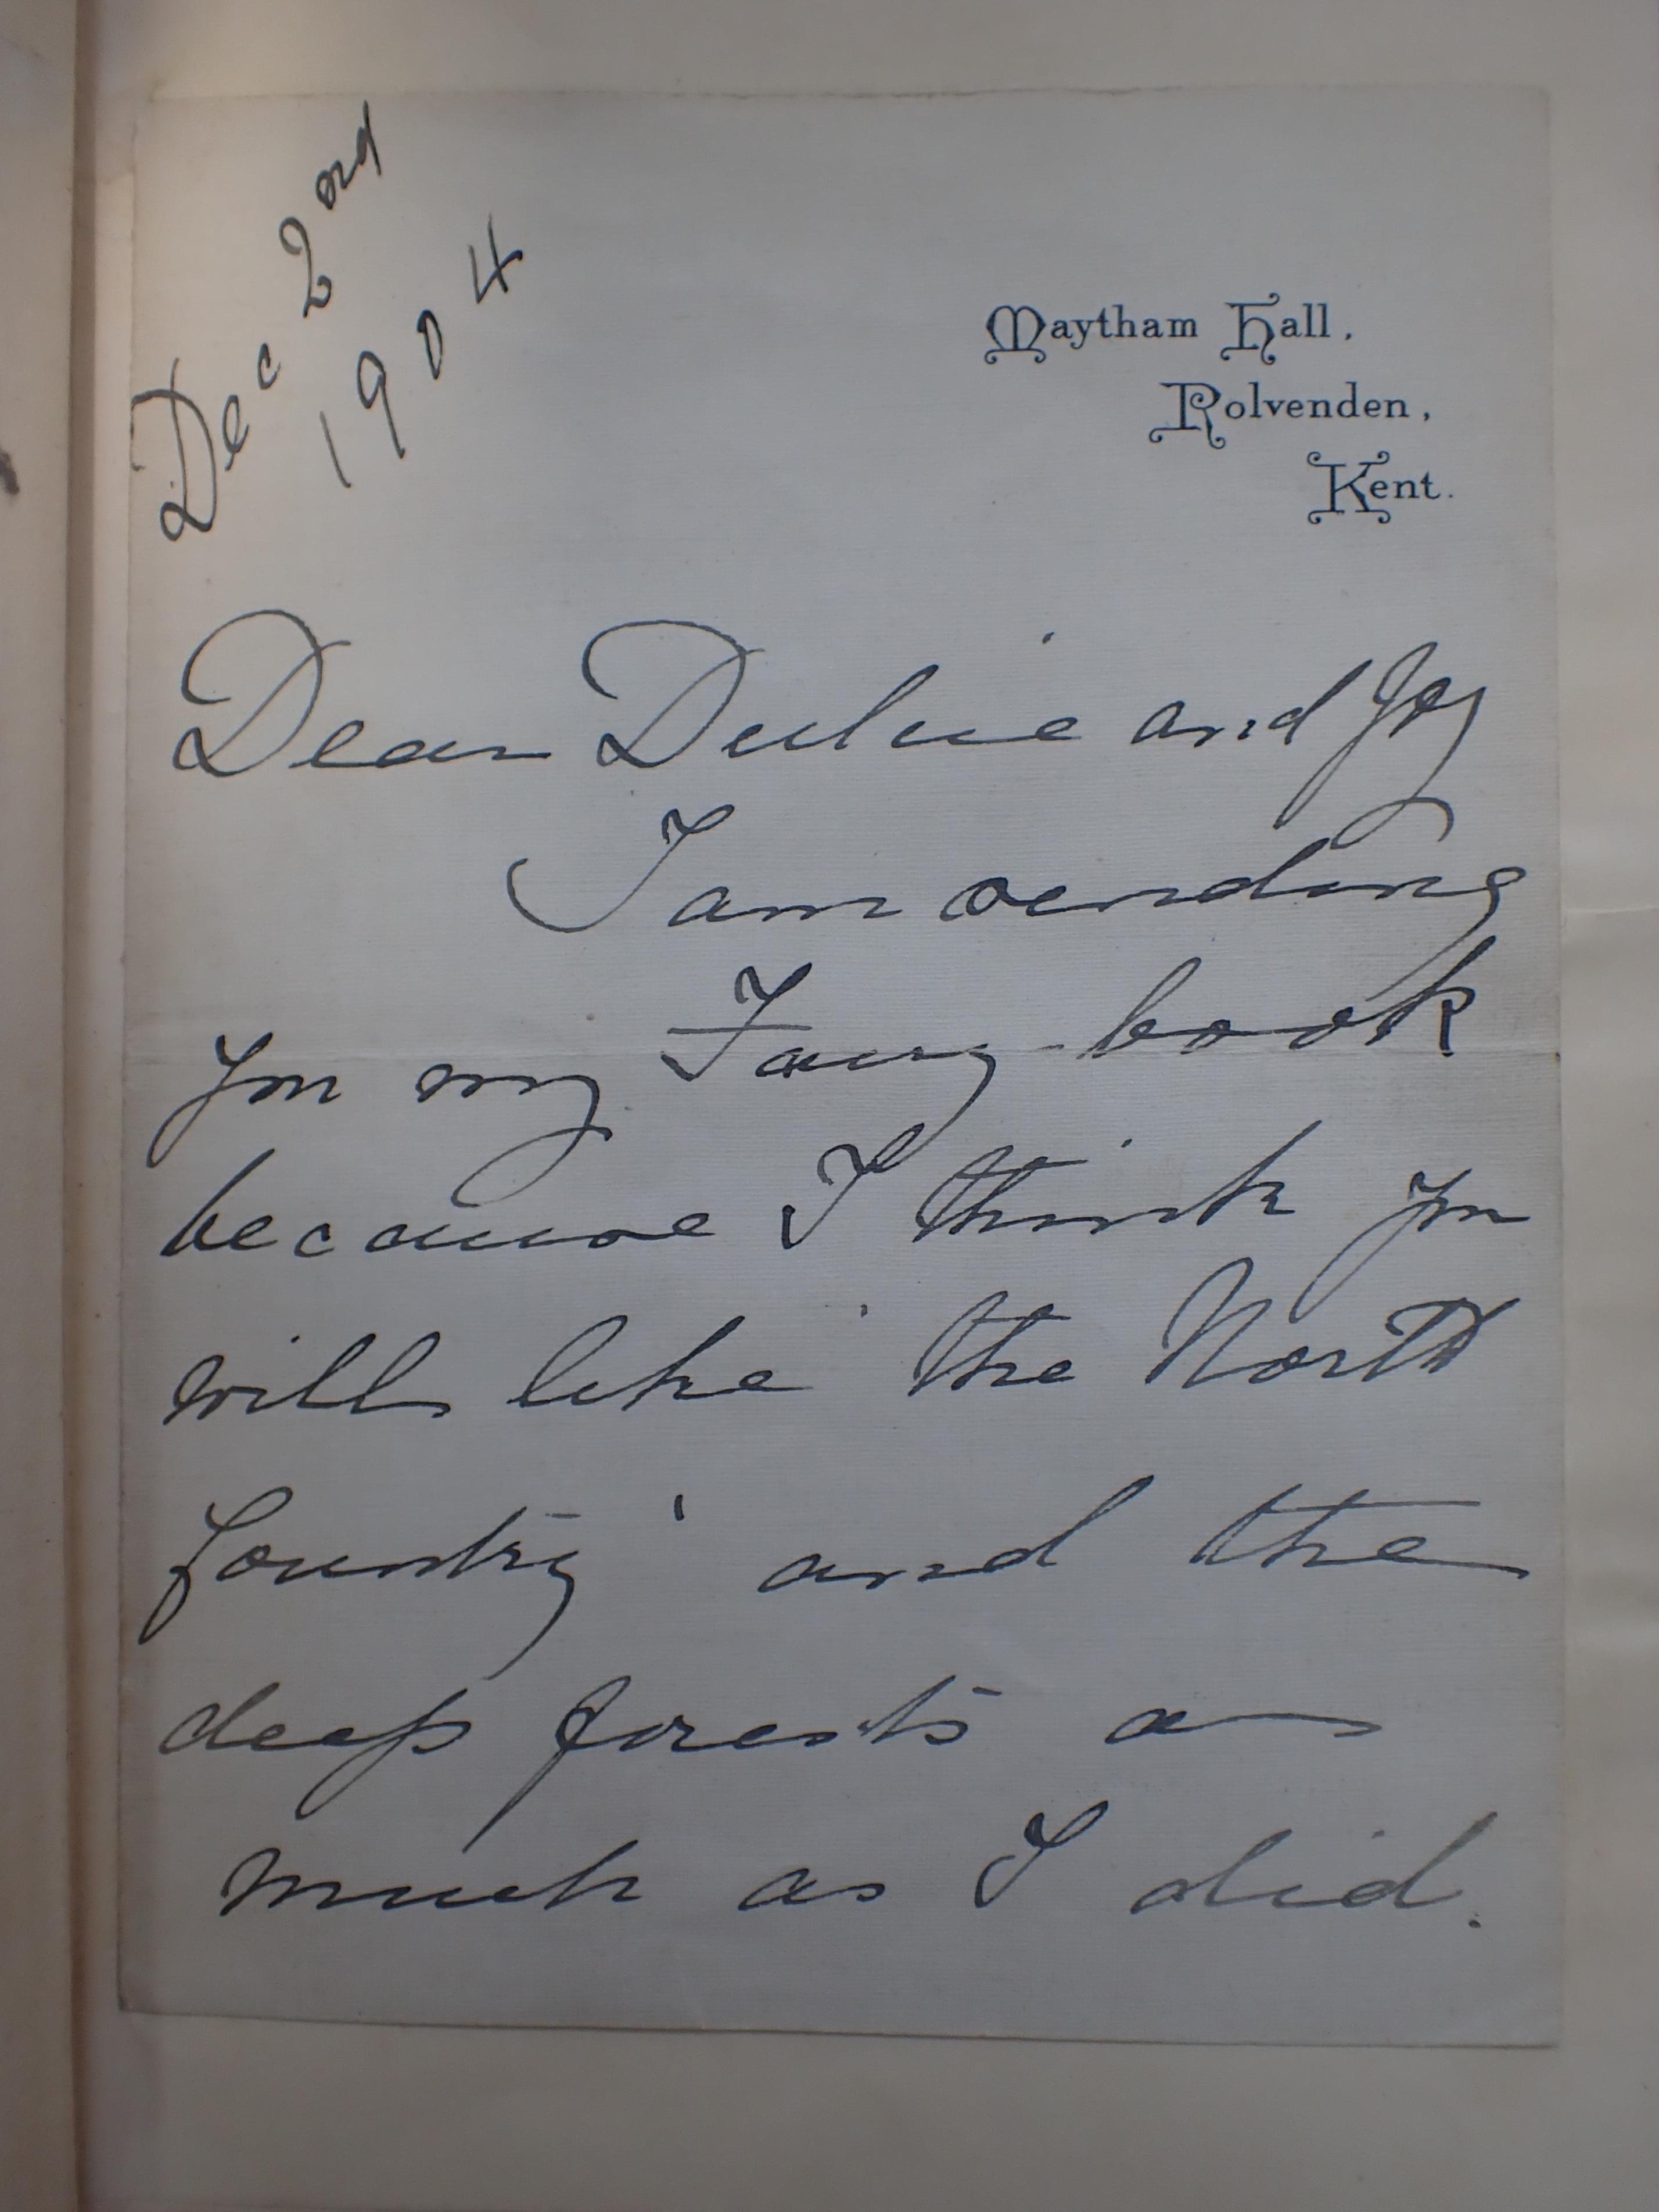 Dec 2nd
1904
Maytham Hall,
Rolvenden,
Kent.
Dear Dulcie and Joy
I am sending
you my Fairy book
because I think you
will like 'the North
Country' and the
deep forests as
much as I did.